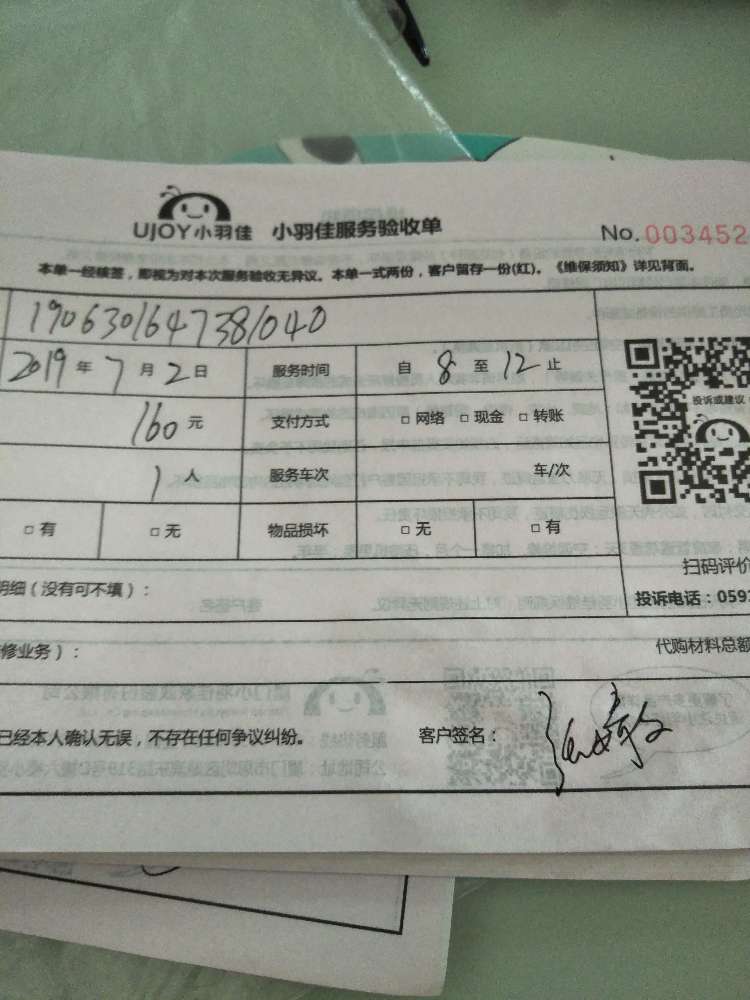 UJOY小羽佳 小羽佳服务验收单 No. 003452
本单一经核签，即视为对本次服务验收无异议。本单一式两份，客户留存一份(红)。《维保须知》详见背面。
1906301647381040
2019年7月2日 服务时间 自8至12止
160元 支付方式 □ 网络 □ 现金 □ 转账
投诉或建议
1人 服务车次 车/次
□ 有 □ 无 物品损坏 □ 无 □ 有
扫码评价
明细（没有可不填）： 投诉电话：059
修业务）： 代购材料总额
已经本人确认无误，不存在任何争议纠纷。 客户签名：